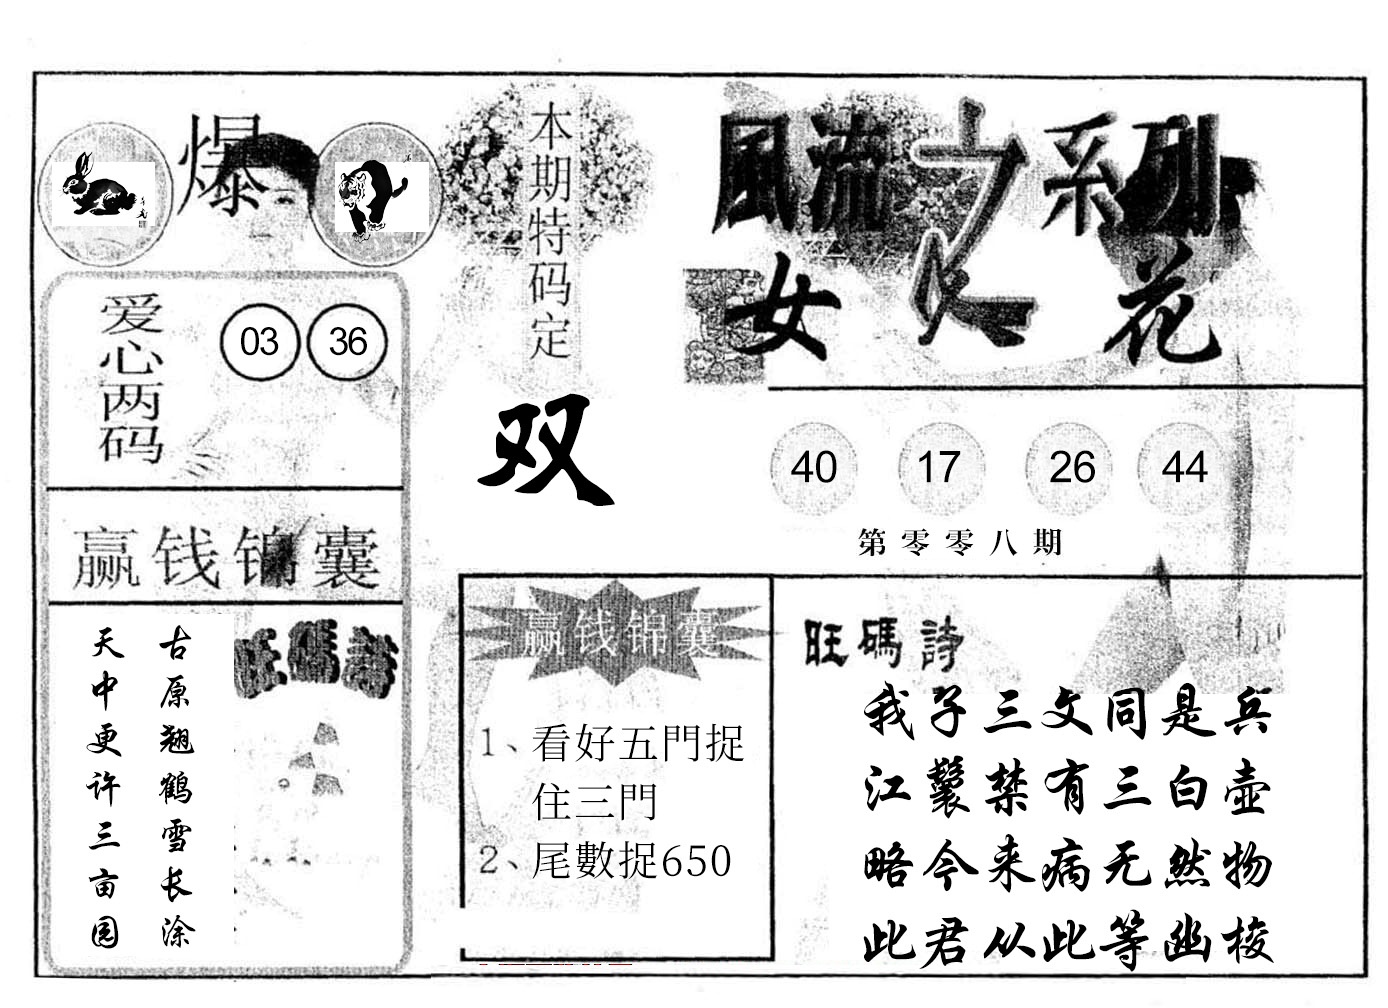 爆
本期特码定
双
風流之系列
女人花
爱心两码
03 36
40 17 26 44
第零零八期
赢钱锦囊
旺碼詩
古原翘鹤雪长涂
天中更许三亩园
赢钱锦囊
1、看好五門捉
住三門
2、尾數捉650
旺碼詩
我子三文同是兵
江鬟禁有三白壶
略今来病无然物
此君从此等幽梭